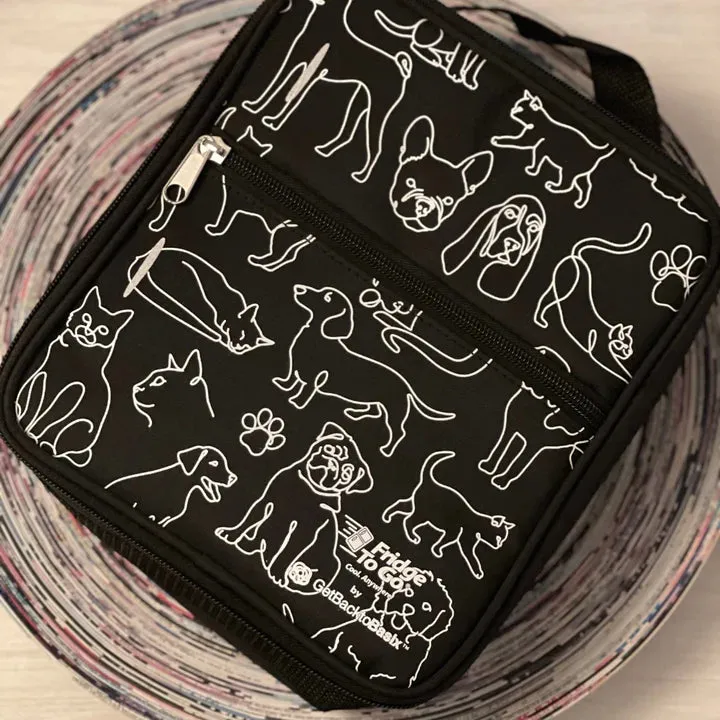 Fridge
To Go
Cool. Anywhere.
by
GetBacktoBasix™